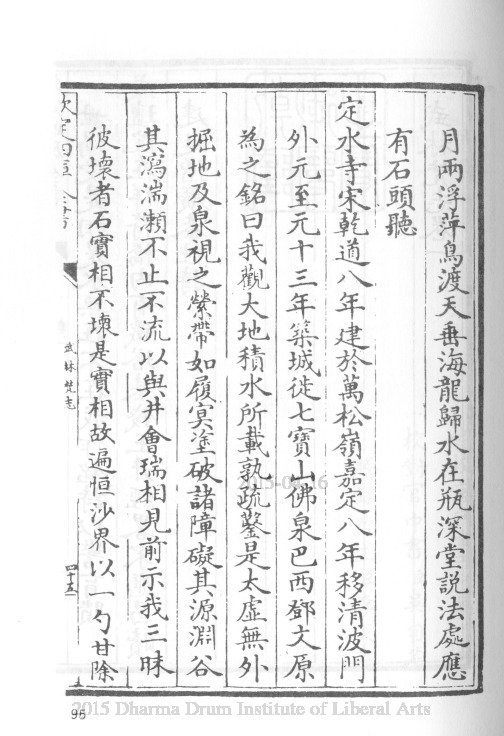 月兩浮萍鳥渡天垂海龍歸水在瓶深堂說法處應
有石頭聽
定水寺宋乾道八年建於萬松嶺嘉定八年移清波門
外元至元十三年築城徙七寶山佛泉巴西鄧文原
為之銘曰我觀大地積水所載孰疏鑿是太虛無外
掘地及泉視之縈帶如履冥塗破諸障礙其源淵谷
其瀉湍瀨不止不流以與井會瑞相見前示我三昧
彼壞者石實相不壞是實相故遍恒沙界以一勺甘除
欽定四庫全書
武林梵志
四十五
95
2015 Dharma Drum Institute of Liberal Arts